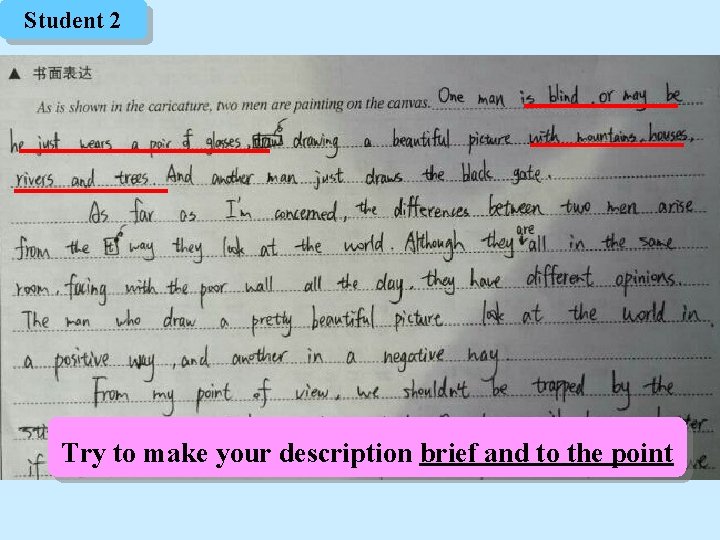 Student 2
▲ 书面表达
As is shown in the caricature, two men are painting on the canvas. One man is blind, or may be
he just wears a pair of glasses, drawing a beautiful picture with mountains, houses,
rivers and trees. And another man just draws the black gate.
As far as I'm concerned, the differences between two men arise
from the way they look at the world. Although they are all in the same
room, facing with the poor wall all the day, they have different opinions.
The man who draw a pretty beautiful picture look at the world in
a positive way, and another in a negative way
From my point of view, we shouldn't be trapped by the
Try to make your description brief and to the point
if